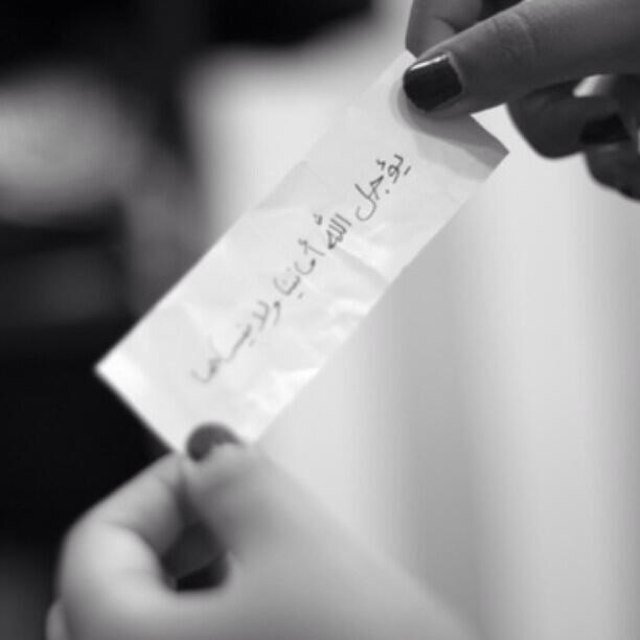 يؤجل اللّٰه أمانينا ولا ينساها